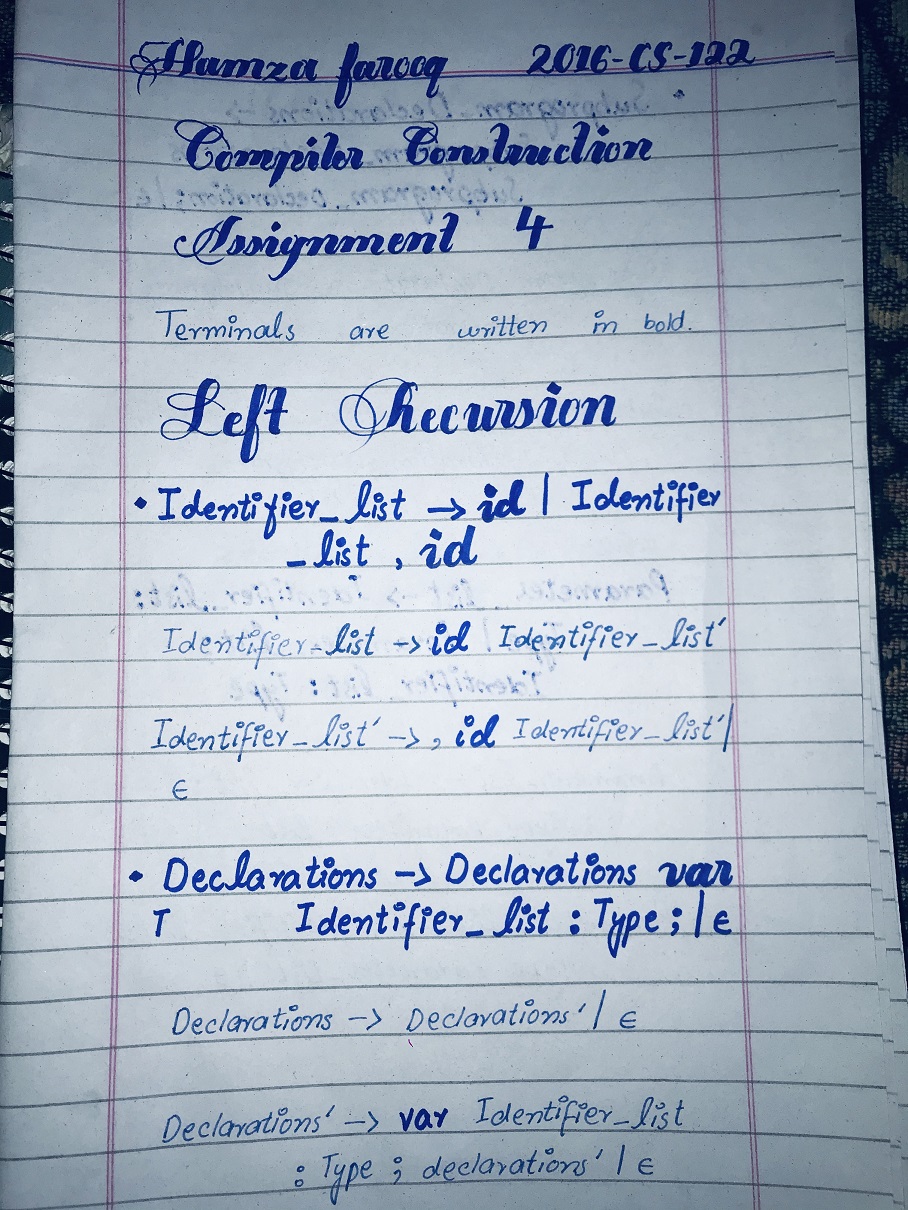 Hamza farooq 2016-CS-122
Compiler Construction
Assignment 4
Terminals are written in bold.
Left Recursion
• Identifier_list -> id | Identifier
_list , id
Identifier_list -> id Identifier_list'
Identifier_list' -> , id Identifier_list' |
ϵ
• Declarations -> Declarations var
T Identifier_list : Type ; | ϵ
Declarations -> Declarations' | ϵ
Declarations' -> var Identifier_list
: Type ; declarations' | ϵ